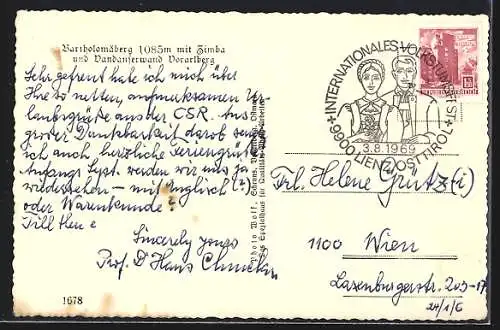 Bartholomäberg 1085m mit Zimba
und Vandanserwand Vorarlberg
Sehr gefreut habe ich mich über
Ihre so netten, aufmerksamen Ur-
laubsgrüße aus der CSR. Aus
großer Dankbarkeit darob sende
ich auch herzliche Feriengrüße
Anfangs Sept. werden wir uns ja
wiedersehen – mit Englisch (?)
oder Warenkunde?
Till then
Sincerely yours
Prof. Dr Hans
1678
Photo Wolf, Schruns
INTERNATIONALES VOLKSTUMSFEST
9900 LIENZ OSTTIROL
3.8.1969
Frl. Helene Grütz(i)
1100 Wien
Laxenburgerstr. 203-17
24/1/6